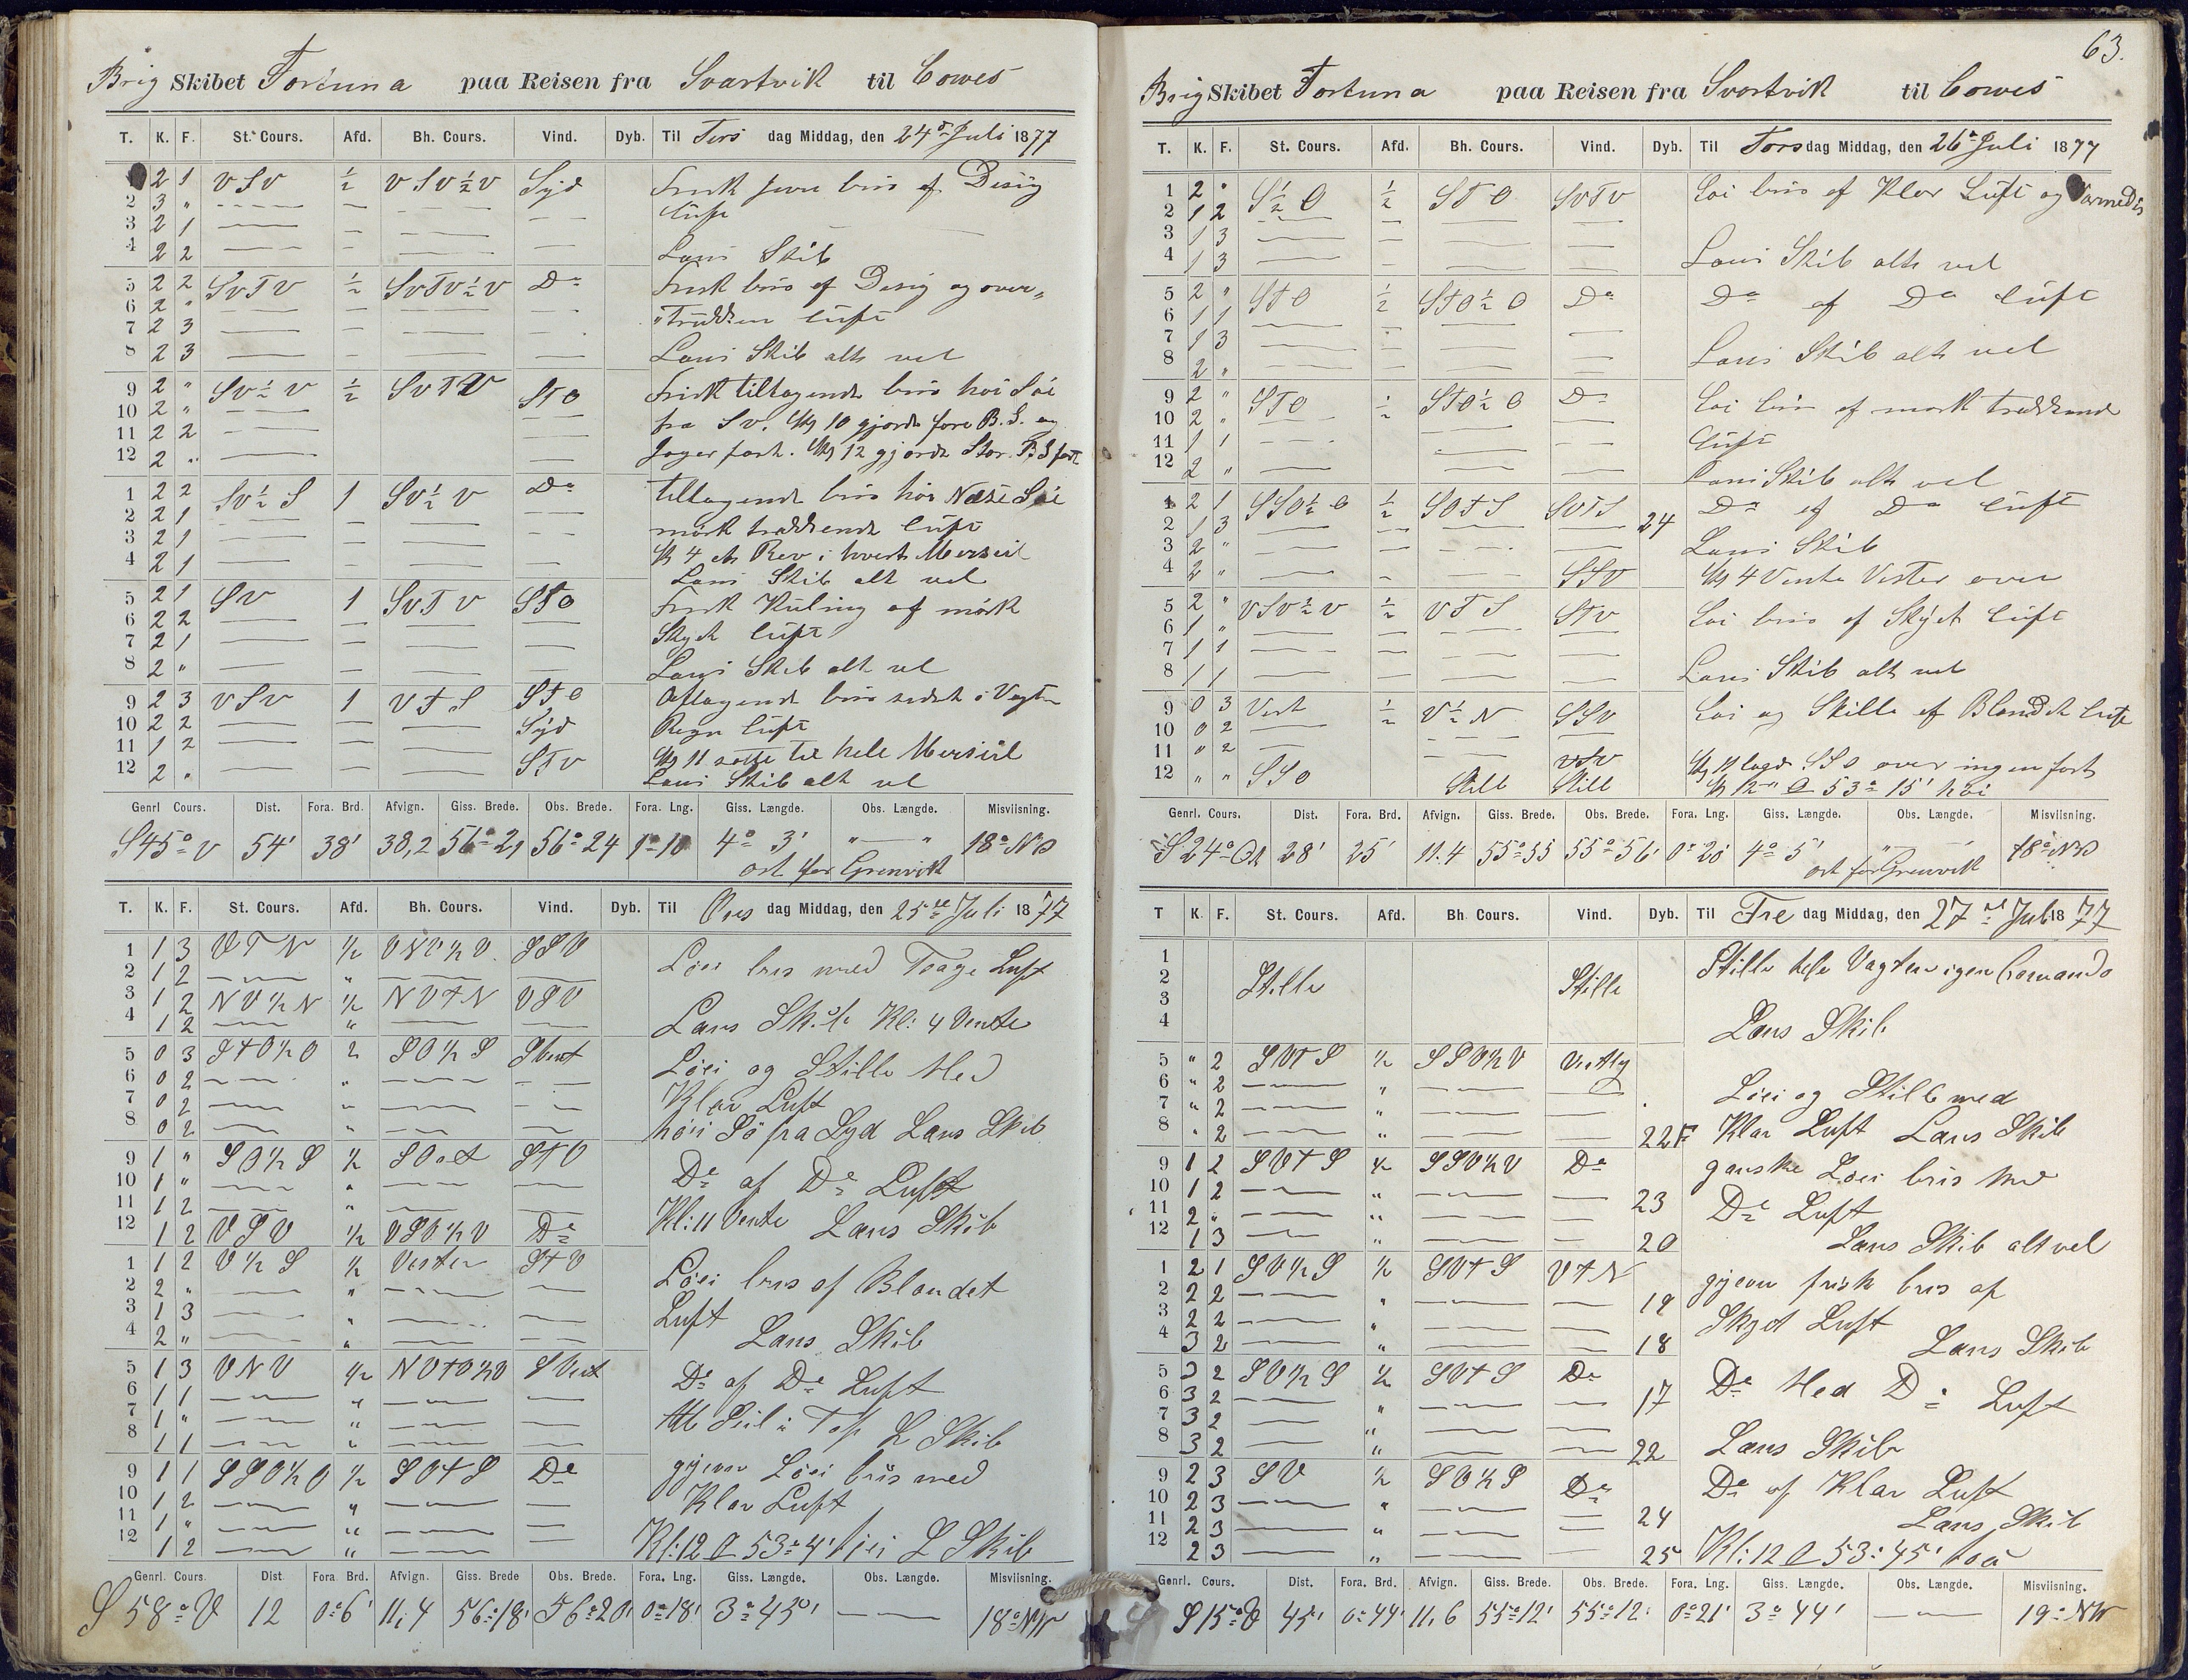 Brig Skibet Fortuna paa Reisen fra Svartvik til Cowes
T. K. F. St. Cours. Afd. Bh. Cours. Vind. Dyb. Til Tirs dag Middag, den 24de Juli 1877
2 1 VSV ½ VSV½V Syd Frisk jevn bris af Disig
2 3 " Luft
3 2 1
4 2 2 Lens Skib
5 2 2 SVTV ½ SVTV½V Do Frisk bris af Disig og over„
6 2 " „trukken luft
7 2 3
8 2 3 Lens Skib alt vel
9 2 " SV½V ½ SVTV STO Frisk tiltagende bris høi Søi
10 2 " fra SV. Kl 10 gjorde fore B.S. og
11 2 2 Jager fast. Kl 12 gjorde Stor. B.S fast
12 2 "
1 2 2 SV½S 1 SV½V Do tiltagende bris høi Næse Søi
2 2 1 mørk trækkende luft
3 2 1 Kl 4 et Rev i hvert Merseil
4 2 1 Lens Skib alt vel
5 2 1 SV 1 SVTV STO Frisk Kuling af mørk
6 2 2 Skyet luft
7 2 1
8 2 " Lens Skib alt vel
9 2 3 VSV 1 VTS STO Aftagende bris sidst i Vagten
10 2 2 Syd Regn luft
11 1 2 Kl 11 satte til hele Merseil
12 2 " STV Lens Skib alt vel
Genrl Cours. Dist. Fora. Brd. Afvign. Giss. Brede. Obs. Brede. Fora. Lng. Giss. Længde. Obs. Længde. Misviisning.
S45°V 54' 38' 38,2 56°21 56°24 1°10 4° 3' " — " 18°NV
ost for Grenvik
T. K. F. St. Cours. Afd. Bh. Cours. Vind. Dyb. Til Ons dag Middag, den 25de Juli 1877
1 1 3 VTN ½ VNV½V. SSV Løei bris med Taage Luft
2 1 2 "
3 1 2 NV½N ½ NVTN VSV
4 1 2 " Lens Skib Kl: 4 Vente
5 0 3 STO½O ½ SO½S SVest Løei og Stille Med
6 0 2 " Klar Luft
7 0 2 "
8 0 2 " høi Sö fra Syd Lens Skib
9 1 " SO½S ½ SOost STO De af De Luft
10 1 " "
11 1 2 " Kl: 11 Vente Lens Skib
12 1 2 VSV ½ VSV½V De
1 1 2 V½S ½ Vesten STV Løei bris af Blandet
2 2 " " Luft
3 1 3 "
4 2 " " Lens Skib
5 1 3 VNV ½ NVTV½V SVest De af De Luft
6 1 1 "
7 1 " " Alle Seil i Top L Skib
8 1 1 "
9 1 1 SSO½O ½ SOTS De gjevn Löei bris med
10 1 2 " Klar Luft
11 1 " "
12 1 2 " Kl: 12 53°4' høi L Skib
Genrl. Cours. Dist. Fora. Brd. Afvign. Giss. Brede Obs. Brede. Fora. Lng. Giss. Længde. Obs. Længde. Misviisning.
S58°V 12 0°6' 11,4 56°18' 56°20' 0°18' 3°45' — — 18°NW
63.
Brig Skibet Fortuna paa Reisen fra Svartvik til Cowes
T. K. F. St. Cours. Afd. Bh. Cours. Vind. Dyb. Til Tors dag Middag, den 26de Juli 1877
1 2 " S½O ½ STO SVTV Løi bris af Klar Luft og Varmedis
2 1 2
3 1 3
4 1 3 Lens Skib alt vel
5 2 " STO ½ STO½O Do Do af Do luft
6 1 1
7 1 3
8 2 " Lens Skib alt vel
9 2 " STO ½ STO½O Do Løi bris af mørk trækkende
10 2 " luft
11 1 1
12 2 " Lens Skib alt vel
1 2 1 SSO½O ½ SOTS SVTS Do af Do luft
2 1 3 24
3 2 " Lens Skib
4 2 " SSV Kl 4 Vente Vester over
5 2 " VSV½V ½ VTS STV Løi bris af Skyet luft
6 1 "
7 1 1
8 1 1 Lens Skib alt vel
9 0 3 Vest ½ V½N SSV Løi og Stille af Blandet luft
10 0 2
11 " 2 VSV Kl 11 lagde SSO over ingen fart
12 " " SSO Still Still Kl 12 53° 15' høi
Genrl. Cours. Dist. Fora. Brd. Afvign. Giss. Brede. Obs. Brede. Fora. Lng. Giss. Længde. Obs. Længde. Misviisning.
S24°Ost 28' 25' 11.4 55°55 55°56' 0°20' 4° 5' " " 18°NV
ost for Grenvik
T K. F. St. Cours. Afd. Bh Cours. Vind. Dyb. Til Fre dag Middag, den 27de Juli 1877
1 Stille hele Vagten igen Comando
2 Stille Stille
3
4 Lens Skib
5 " 2 SVTS ½ SSV½V Vestlig
6 " 2 " Löei og Stille med
7 " 2 "
8 " 2 " 22F Klar Luft Lens Skib
9 1 2 SVTS ½ SSV½V De ganske Löei bris Med
10 1 2 " 23 De Luft
11 2 " "
12 1 3 " 20 Lens Skib alt vel
1 2 1 SV½S ½ SVTS VTN gjevn frisk bris af
2 2 2 " 19 Skyet Luft
3 2 2 "
4 3 2 " 18 Lens Skib
5 3 2 SV½S ½ SVTS De De Med De Luft
6 3 2 " 17
7 3 2 "
8 3 2 " 22 Lens Skib
9 2 3 SV ½ SV½S De De af Klar Luft
10 2 3 "
11 2 3 " 24 Lens Skib
12 2 3 " 25 Kl: 12 53° 45'
Genrl. Cours. Dist. Fora. Brd. Afvign. Giss. Brede. Obs. Brede. Fora. Lng. Giss. Længde. Obs. Længde. Misviisning.
S15°V 45' 0°44' 11,6 55°12' 55°12' 0°21' 3°44' — 19°NW